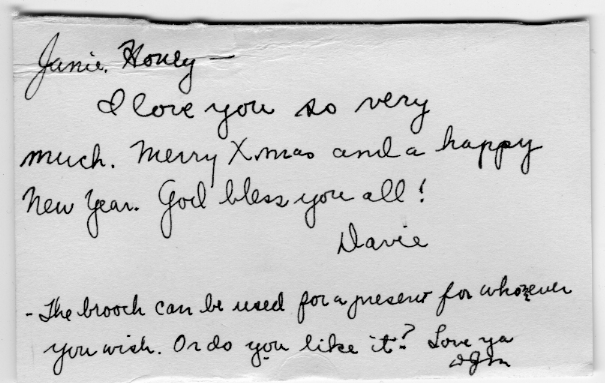 Janie, Honey —
I love you so very
much. Merry Xmas and a happy
New Year. God bless you all!
Davie
- The brooch can be used for a present for whomever
you wish. Or do you like it? Love ya
DJM